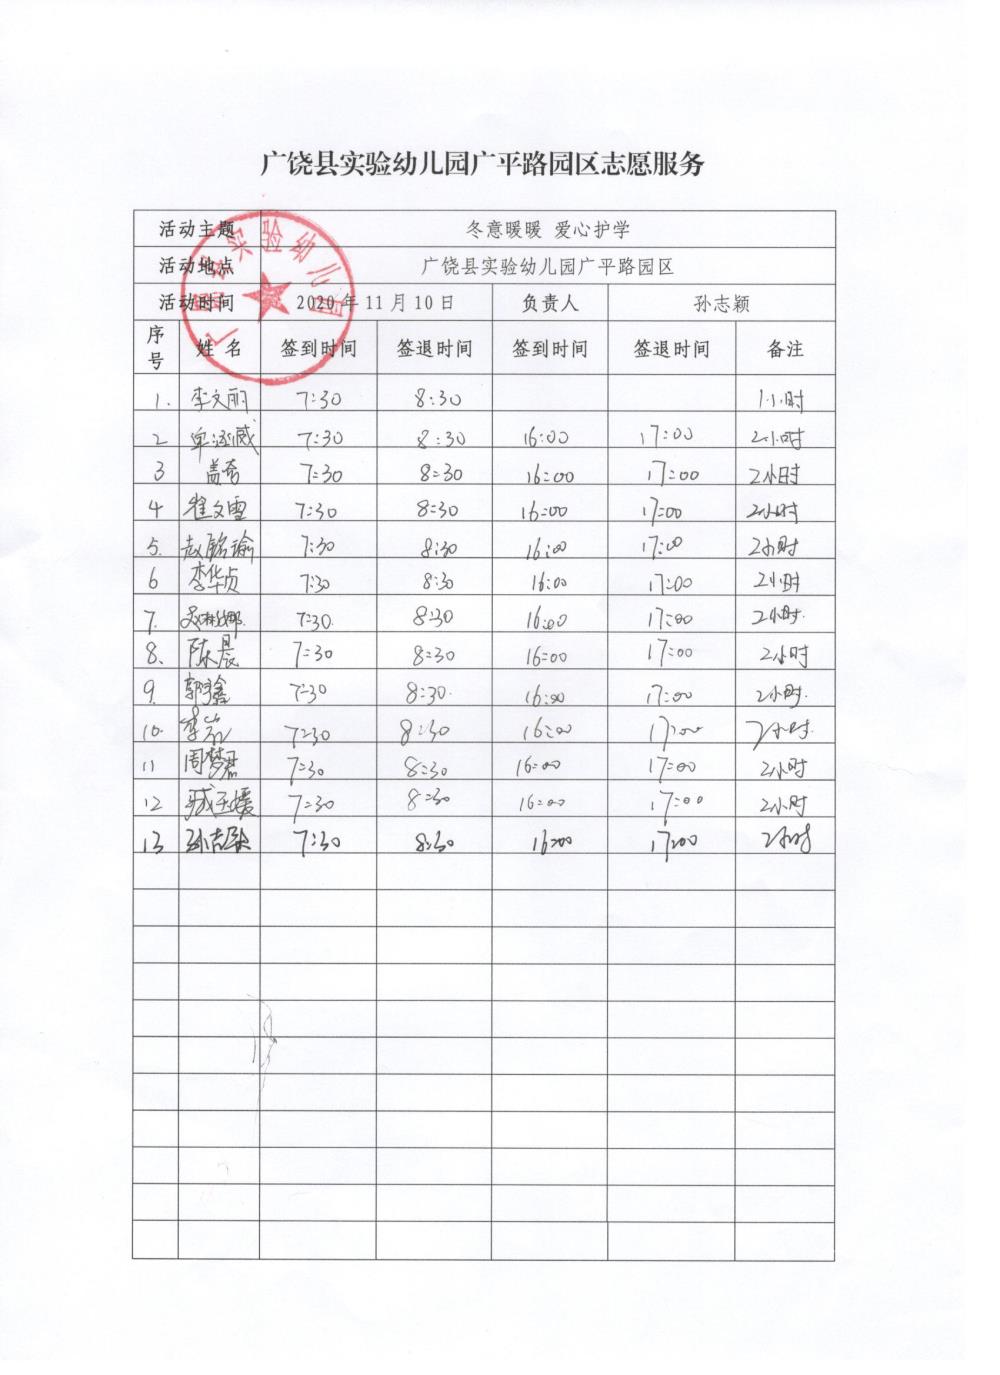 广饶县实验幼儿园广平路园区志愿服务
活动主题 冬意暖暖 爱心护学
活动地点 广饶县实验幼儿园广平路园区
活动时间 2020年11月10日 负责人 孙志颖
序号 姓名 签到时间 签退时间 签到时间 签退时间 备注
1. 李文丽 7:30 8:30 1小时
2 7:30 8:30 16:00 17:00 2小时
3 盖奇 7:30 8:30 16:00 17:00 2小时
4 崔文雪 7:30 8:30 16:00 17:00 2小时
5. 赵铭瑜 7:30 8:30 16:00 17:00 2小时
6 李华贞 7:30 8:30 16:00 17:00 2小时
7. 7:30. 8:30 16:00 17:00 2小时.
8. 陈晨 7:30 8:30 16:00 17:00 2小时
9. 郭鑫 7:30 8:30. 16:00 17:00 2小时.
10. 7:30 8:30 16:00 17:00 2小时.
11 周梦君 7:30 8:30 16:00 17:00 2小时
12 7:30 8:30 16:00 17:00 2小时
13 孙志颖 7:30 8:30 16:00 17:00 2小时